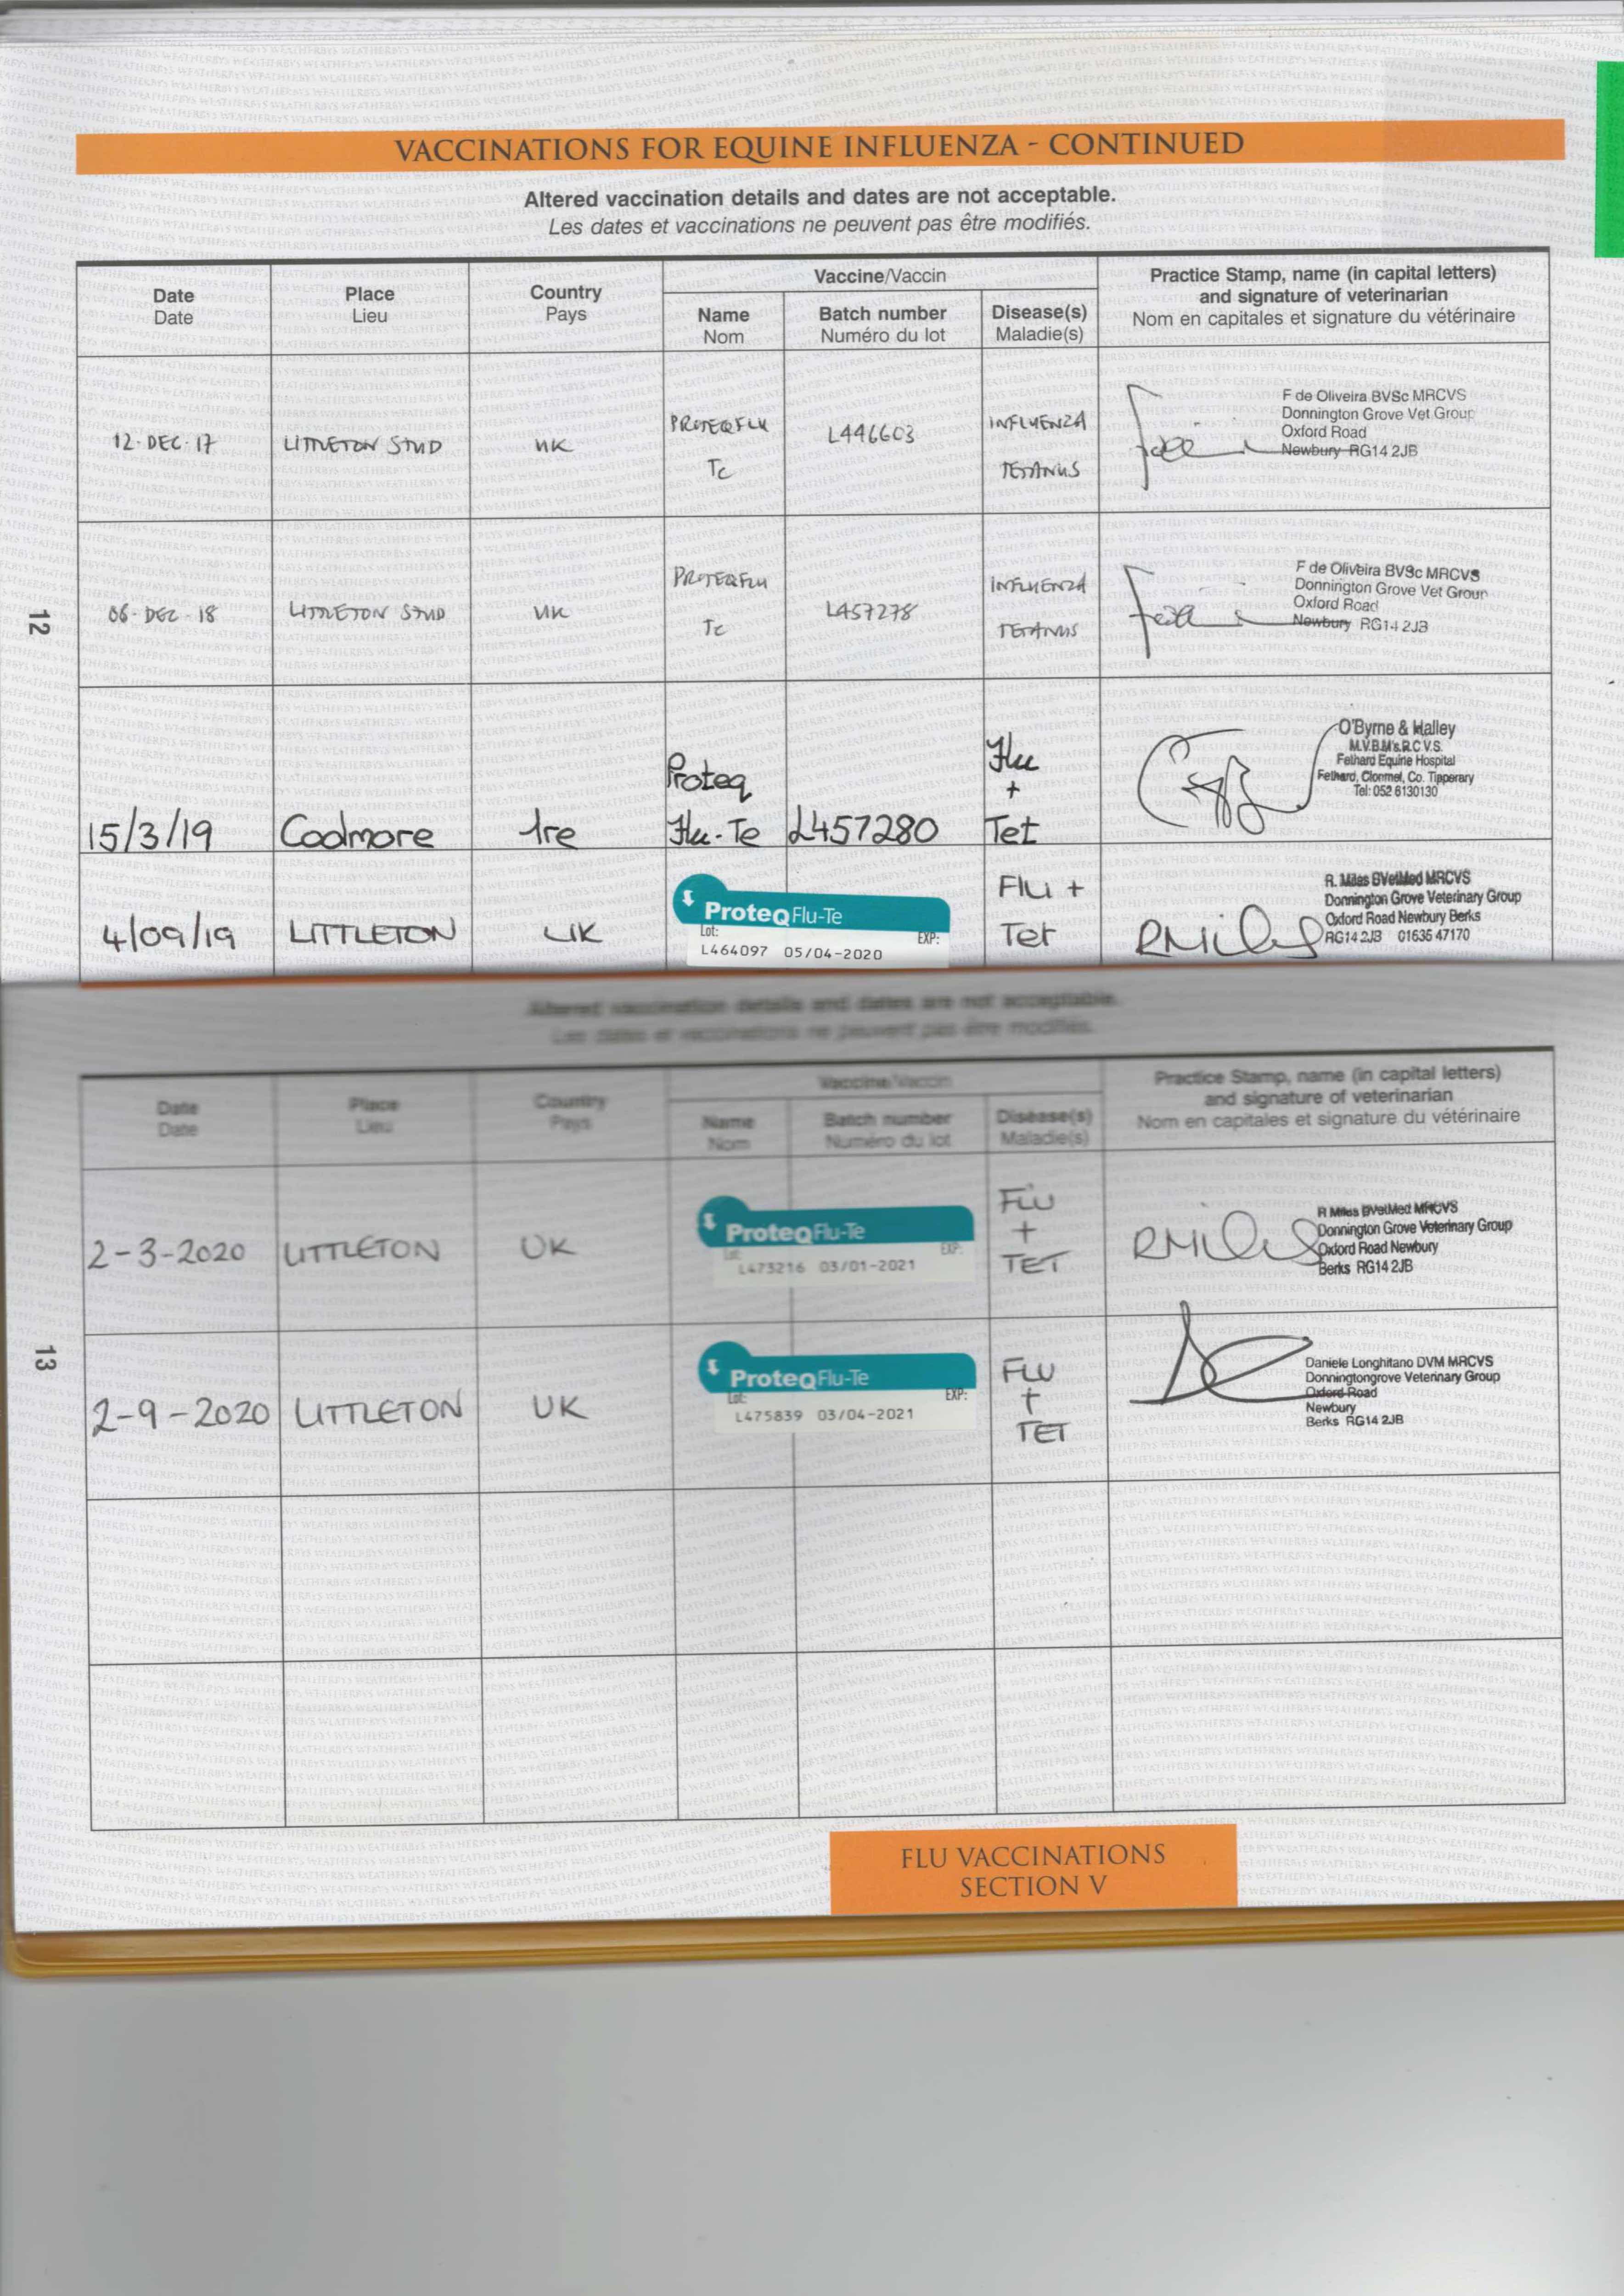 VACCINATIONS FOR EQUINE INFLUENZA - CONTINUED
Altered vaccination details and dates are not acceptable.
Les dates et vaccinations ne peuvent pas être modifiés.
Date
Date
Place
Lieu
Country
Pays
Vaccine/Vaccin
Name
Nom
Batch number
Numéro du lot
Disease(s)
Maladie(s)
Practice Stamp, name (in capital letters)
and signature of veterinarian
Nom en capitales et signature du vétérinaire
12
12·DEC·17
LITTLETON STUD
UK
PROTEQFLU
Te
L446603
INFLUENZA
TETANUS
F de Oliveira BVSc MRCVS
Donnington Grove Vet Group
Oxford Road
Newbury RG14 2JB
06·DEC·18
LITTLETON STUD
UK
PROTEQFLU
Te
L457278
INFLUENZA
TETANUS
F de Oliveira BVSc MRCVS
Donnington Grove Vet Group
Oxford Road
Newbury RG14 2JB
15/3/19
Coolmore
Ire
Proteq
Flu-Te
L457280
Flu
+
Tet
O'Byrne & Halley
M.V.B.M's.R.C.V.S.
Fethard Equine Hospital
Fethard, Clonmel, Co. Tipperary
Tel: 052 6130130
4/09/19
LITTLETON
UK
ProteqFlu-Te
Lot: EXP:
L464097 05/04-2020
Flu +
Tet
RMiles
R. Miles BVetMed MRCVS
Donnington Grove Veterinary Group
Oxford Road Newbury Berks
RG14 2JB 01635 47170
Altered vaccination details and dates are not acceptable.
Les dates et vaccinations ne peuvent pas être modifiés.
Date
Date
Place
Lieu
Country
Pays
Vaccine/Vaccin
Name
Nom
Batch number
Numéro du lot
Disease(s)
Maladie(s)
Practice Stamp, name (in capital letters)
and signature of veterinarian
Nom en capitales et signature du vétérinaire
13
2-3-2020
LITTLETON
UK
ProteqFlu-Te
Lot: EXP:
L473216 03/01-2021
FLU
+
TET
RMiles
R Miles BVetMed MRCVS
Donnington Grove Veterinary Group
Oxford Road Newbury
Berks RG14 2JB
2-9-2020
LITTLETON
UK
ProteqFlu-Te
Lot: EXP:
L475839 03/04-2021
FLU
+
TET
Daniele Longhitano DVM MRCVS
Donningtongrove Veterinary Group
Oxford Road
Newbury
Berks RG14 2JB
FLU VACCINATIONS
SECTION V